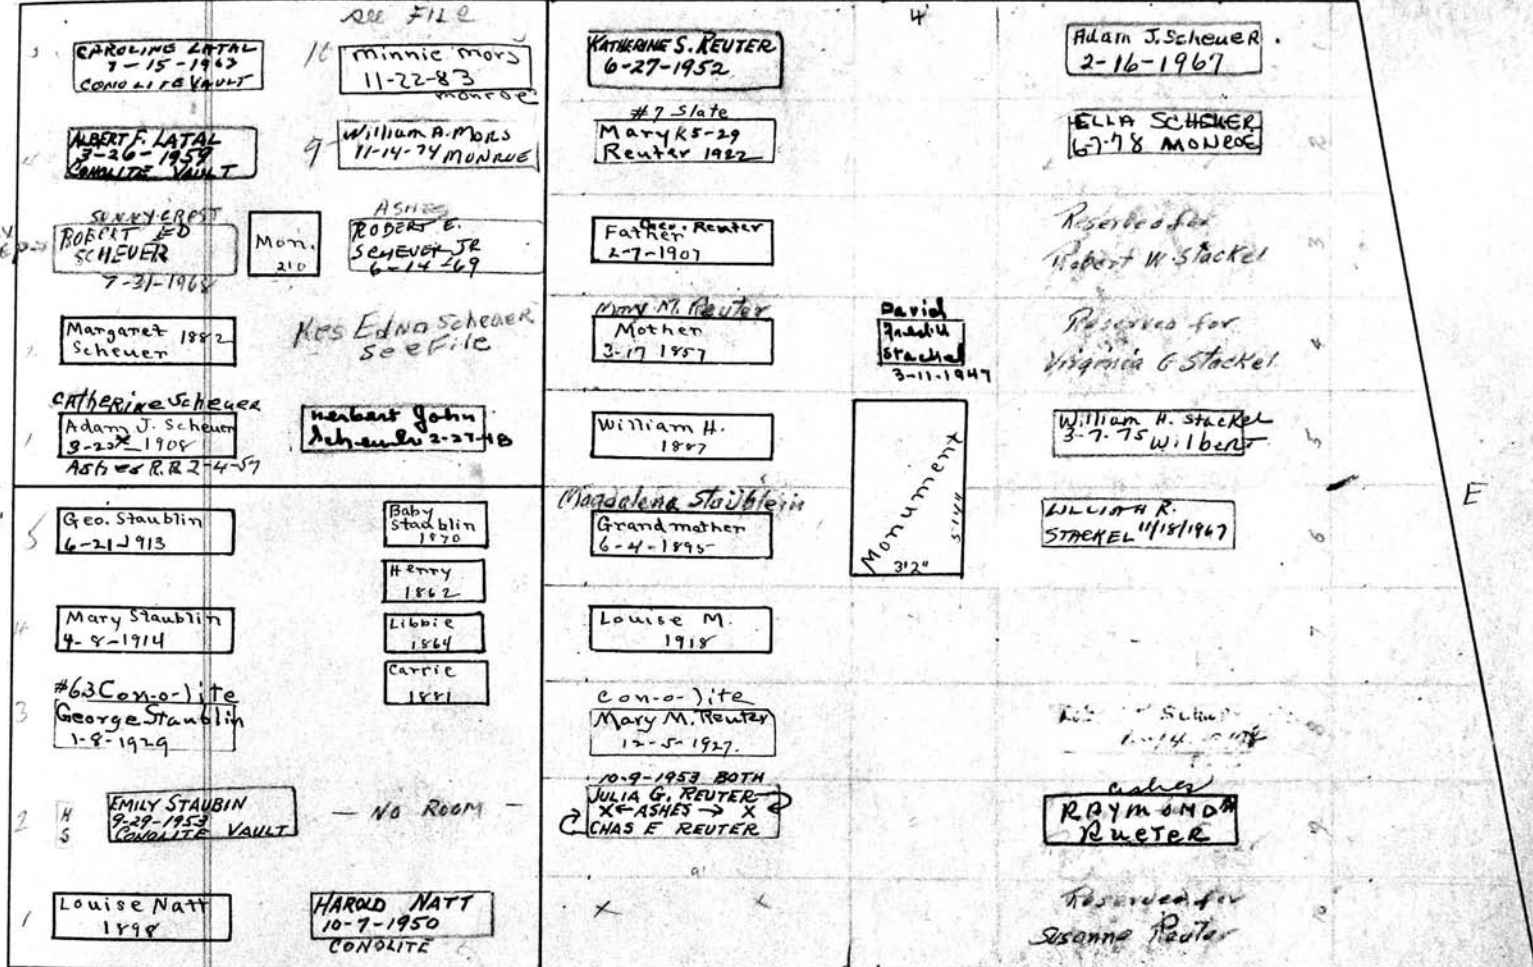 see FILE
CAROLINE LATAL
CONOLITE VAULT
10
Minnie Mors
11-22-83
monroe
ALBERT F. LATAL
3-26-1959
CONOLITE VAULT
9
William A. Mors
11-14-74 MONROE
SUNNYCREST
ROBERT ED
SCHEUER
7-31-1968
Mon.
210
ASHES
ROBERT E.
SCHEUER JR
6-14-69
Margaret 1882
Scheuer
Mrs Edna Scheuer
see File
Catherine Scheuer
Adam J. Scheuer
1908
Ashes R.R 2-4-57
1
Herbert John
2-27-48
5
Geo. Staublin
6-21-1913
Baby
Staublin
1870
Henry
1862
4
Mary Staublin
4-8-1914
Libbie
1864
Carrie
1881
3
#63 Con-o-lite
George Staublin
1-8-1929
2
H
S
EMILY STAUBIN
9-29-1953
CONOLITE VAULT
- NO ROOM -
1
Louise Natt
1898
HAROLD NATT
10-7-1950
CONOLITE
KATHERINE S. REUTER
6-27-1952
#7 Slate
Mary K 5-29
Reuter 1922
Geo. Reuter
Father
2-7-1907
Mary M. Reuter
Mother
3-17 1857
William H.
1887
Magdalena Staüblein
Grandmother
6-4-1895
Louise M.
1918
con-o-lite
Mary M. Reuter
12-5-1927.
10-9-1953 BOTH
JULIA G. REUTER
X ← ASHES → X
CHAS E REUTER
X X
4'
David
Stackel
3-11-1947
Monument
3'2"
Adam J. Scheuer.
2-16-1967
1
ELLA SCHEUER
6-7-78 MONROE
2
Reserved for
Robert W. Stackel
3
Reserved for
Virginia G Stackel
4
William H. Stackel
3-7-75 Wilbert
5
WILLIAM R.
STACKEL 11/18/1967
6
E
7
8
ashes
RAYMOND
RUETER
9
Reserved for
Susanne Reuter
10